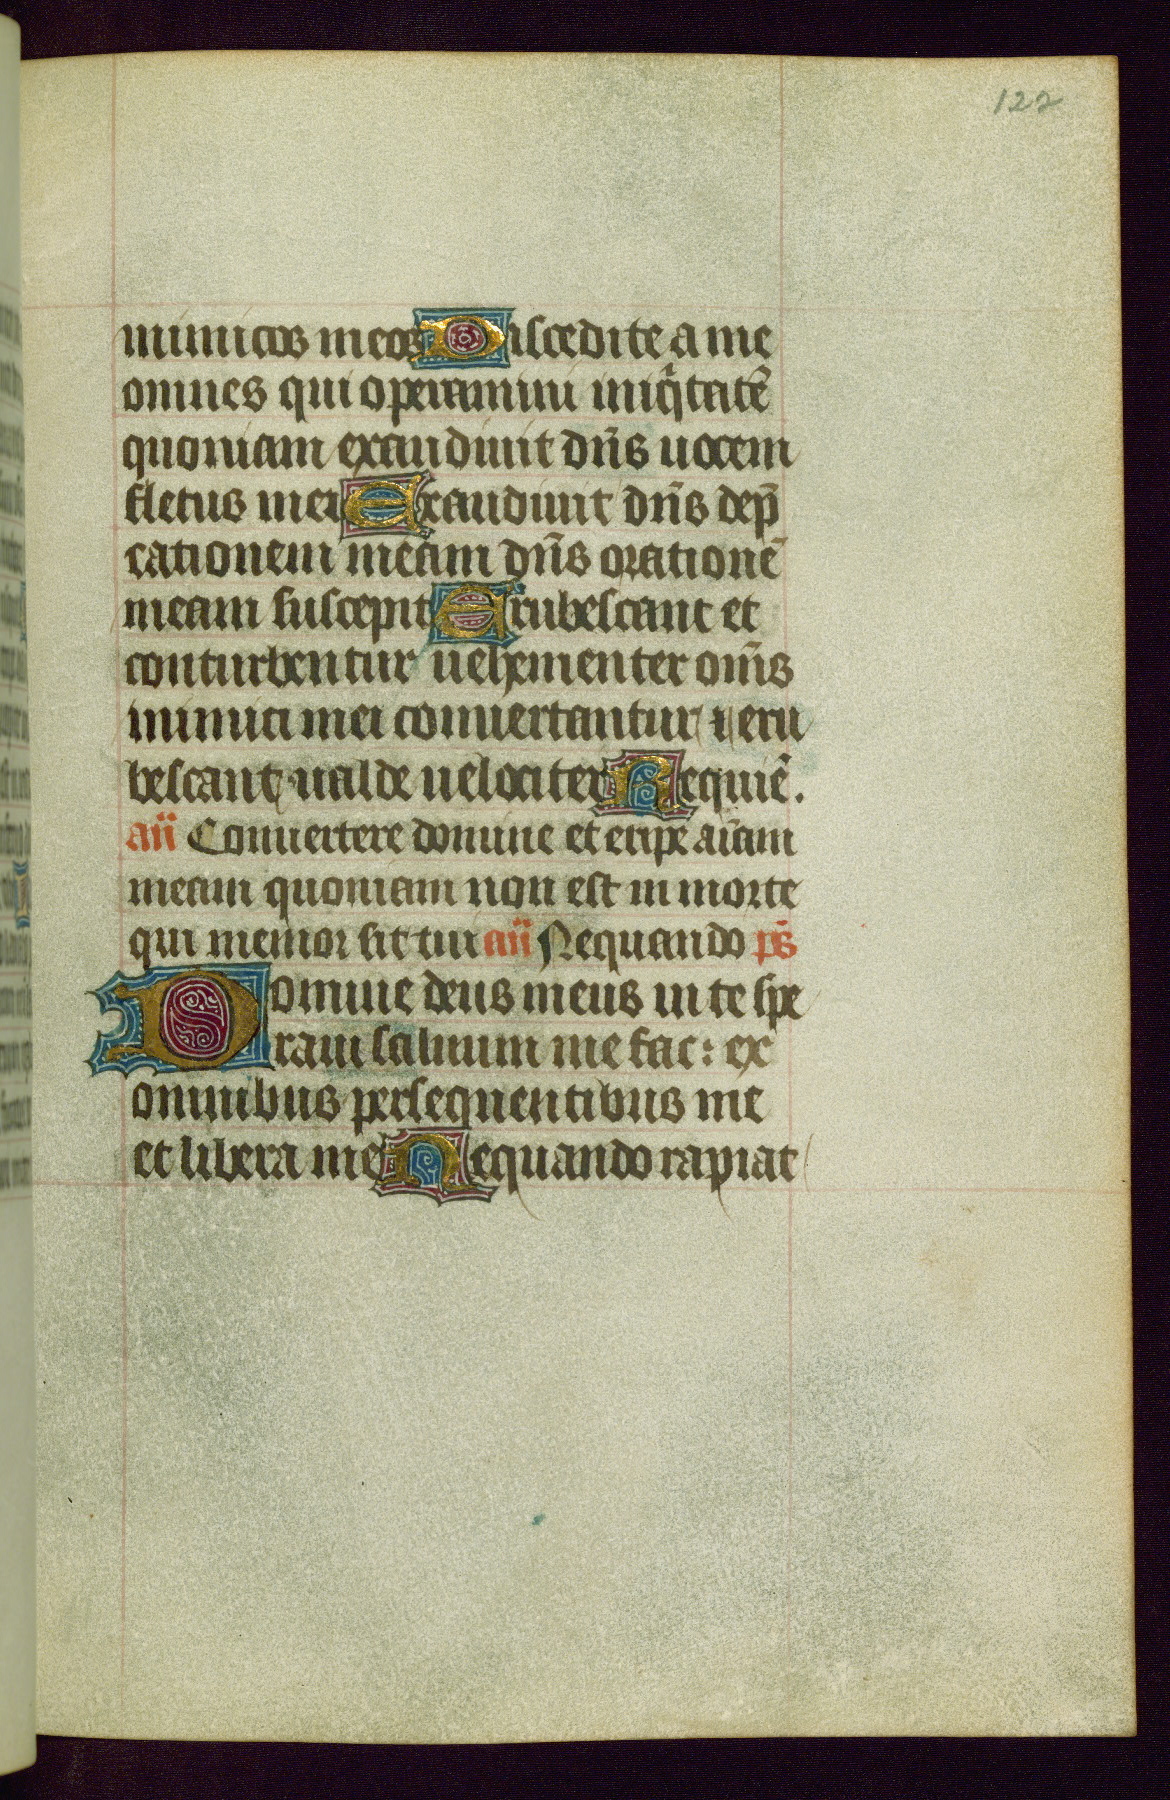 122
inimicos meos Discedite a me
omnes qui operamini iniq̄tatē
quoniam exaudiuit dn̄s uocem
fletus mei Exaudiuit dn̄s dep̄
cationem meam dn̄s orationē
meam suscepit Erubescant et
conturbentur uehementer om̄s
inimici mei conuertantur ⁊ eru
bescant ualde uelociter Requiē.
an̄ Conuertere domine et eripe aīam
meam quoniam non est in morte
qui memor sit tui an̄ Nequando ps̄
Domine deus meus in te spe
raui saluum me fac: ex
omnibus persequentibus me
et libera me Nequando rapiat